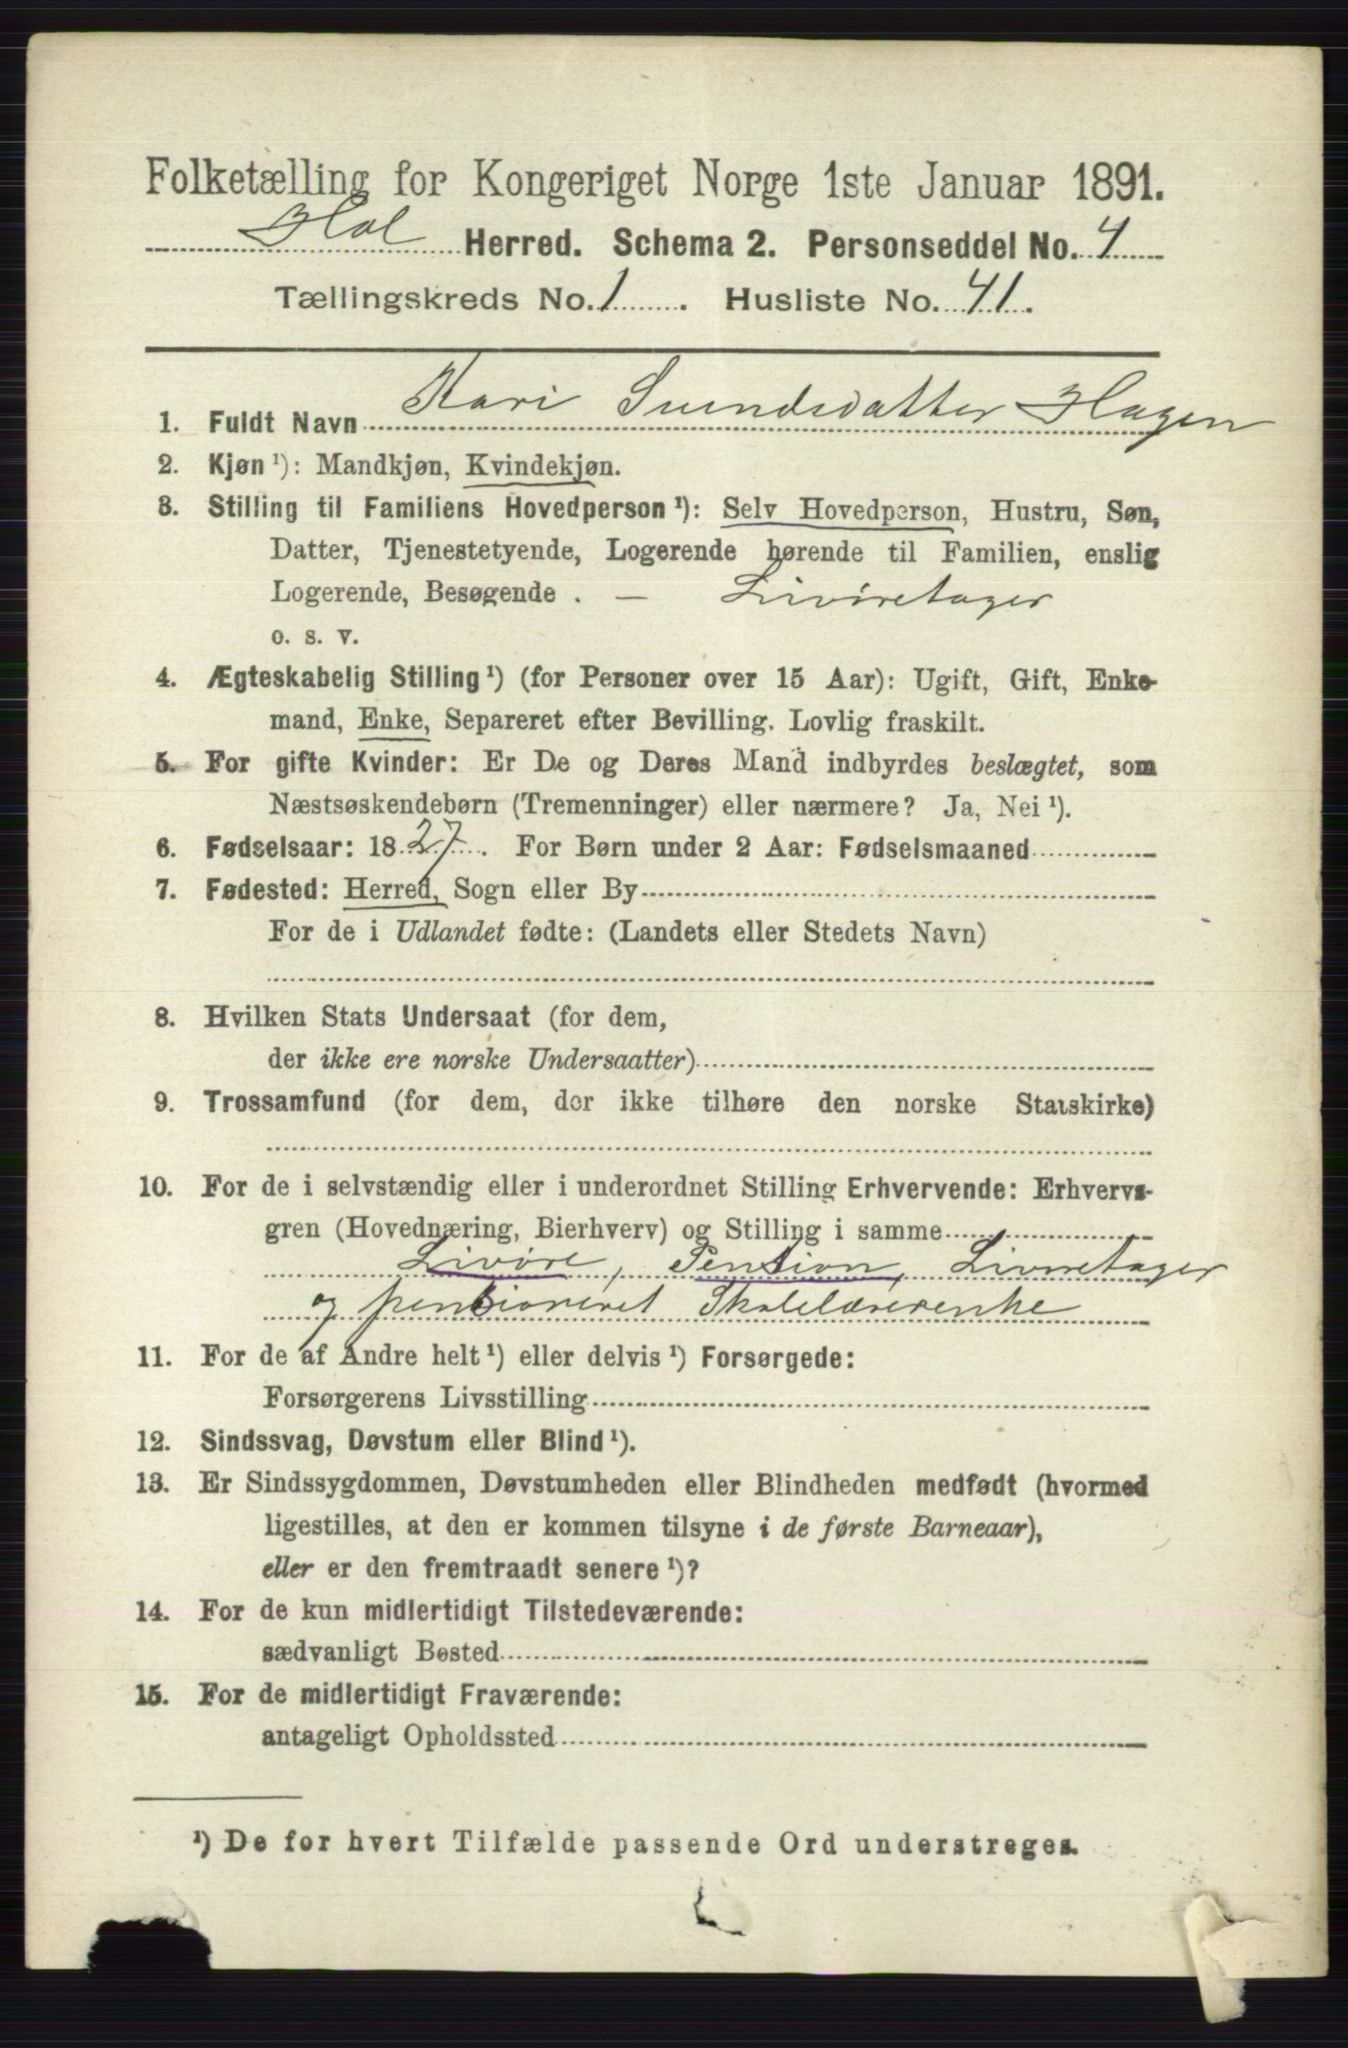 Folketælling for Kongeriget Norge 1ste Januar 1891.
Hol Herred. Schema 2. Personseddel No. 4
Tællingskreds No. 1. Husliste No. 41.
1. Fuldt Navn Kari Svendsdatter Hagen
2. Kjøn ¹): Mandkjøn, Kvindekjøn.
3. Stilling til Familiens Hovedperson ¹): Selv Hovedperson, Hustru, Søn,
Datter, Tjenestetyende, Logerende hørende til Familien, enslig
Logerende, Besøgende . — Livøretager
o. s. v.
4. Ægteskabelig Stilling ¹) (for Personer over 15 Aar): Ugift, Gift, Enke-
mand, Enke, Separeret efter Bevilling. Lovlig fraskilt.
5. For gifte Kvinder: Er De og Deres Mand indbyrdes beslægtet, som
Næstsøskendebørn (Tremenninger) eller nærmere? Ja, Nei ¹).
6. Fødselsaar: 1827. For Børn under 2 Aar: Fødselsmaaned
7. Fødested: Herred, Sogn eller By
For de i Udlandet fødte: (Landets eller Stedets Navn)
8. Hvilken Stats Undersaat (for dem,
der ikke ere norske Undersaatter)
9. Trossamfund (for dem, der ikke tilhøre den norske Statskirke)
10. For de i selvstændig eller i underordnet Stilling Erhvervende: Erhvervs-
gren (Hovednæring, Bierhverv) og Stilling i samme
Livøre, Pension, Livøretager
og pensioneret Skolelærerenke
11. For de af Andre helt ¹) eller delvis ¹) Forsørgede:
Forsørgerens Livsstilling
12. Sindssvag, Døvstum eller Blind ¹).
13. Er Sindssygdommen, Døvstumheden eller Blindheden medfødt (hvormed
ligestilles, at den er kommen tilsyne i de første Barneaar),
eller er den fremtraadt senere ¹)?
14. For de kun midlertidigt Tilstedeværende:
sædvanligt Bosted
15. For de midlertidigt Fraværende:
antageligt Opholdssted
¹) De for hvert Tilfælde passende Ord understreges.